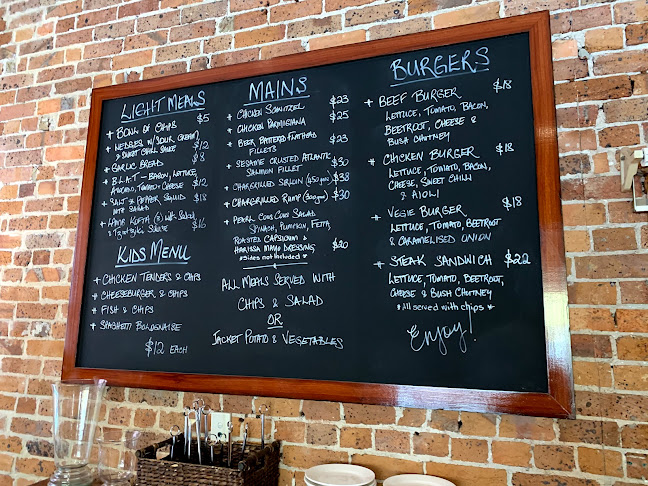 LIGHT MEALS
+ BOWL OF CHIPS $5
+ WEDGES W/SOUR CREAM
& SWEET CHILLI SAUCE $12
+ GARLIC BREAD $8
+ B.L.A.T - BACON, LETTUCE,
AVOCADO, TOMATO & CHEESE $12
+ SALT & PEPPER SQUID
WITH SALAD $18
+ LAMB KOFTA with SALAD
& TZATZIKI SAUCE $16
KIDS MENU
+ CHICKEN TENDERS & CHIPS
+ CHEESEBURGER & CHIPS
+ FISH & CHIPS
+ SPAGHETTI BOLOGNAISE
$12 EACH
MAINS
+ CHICKEN SCHNITZEL $23
+ CHICKEN PARMIGIANA $25
+ BEER BATTERED FLATHEAD
FILLETS $23
+ SESAME CRUSTED ATLANTIC
SALMON FILLET $30
+ CHARGRILLED SIRLOIN (450gms) $38
+ CHARGRILLED RUMP (300gms) $30
+ PEARL COUS COUS SALAD
SPINACH, PUMPKIN, FETTA,
ROASTED CAPSICUM &
HARISSA MAYO DRESSING $20
*Sides not included*
ALL MEALS SERVED WITH
CHIPS & SALAD
OR
JACKET POTATO & VEGETABLES
BURGERS
+ BEEF BURGER $18
LETTUCE, TOMATO, BACON,
BEETROOT, CHEESE &
BUSH CHUTNEY
+ CHICKEN BURGER $18
LETTUCE, TOMATO, BACON,
CHEESE, SWEET CHILLI
& AIOLI
+ VEGIE BURGER $18
LETTUCE, TOMATO, BEETROOT
& CARAMELISED ONION
+ STEAK SANDWICH $22
LETTUCE, TOMATO, BEETROOT,
CHEESE & BUSH CHUTNEY
*All served with chips*
Enjoy!